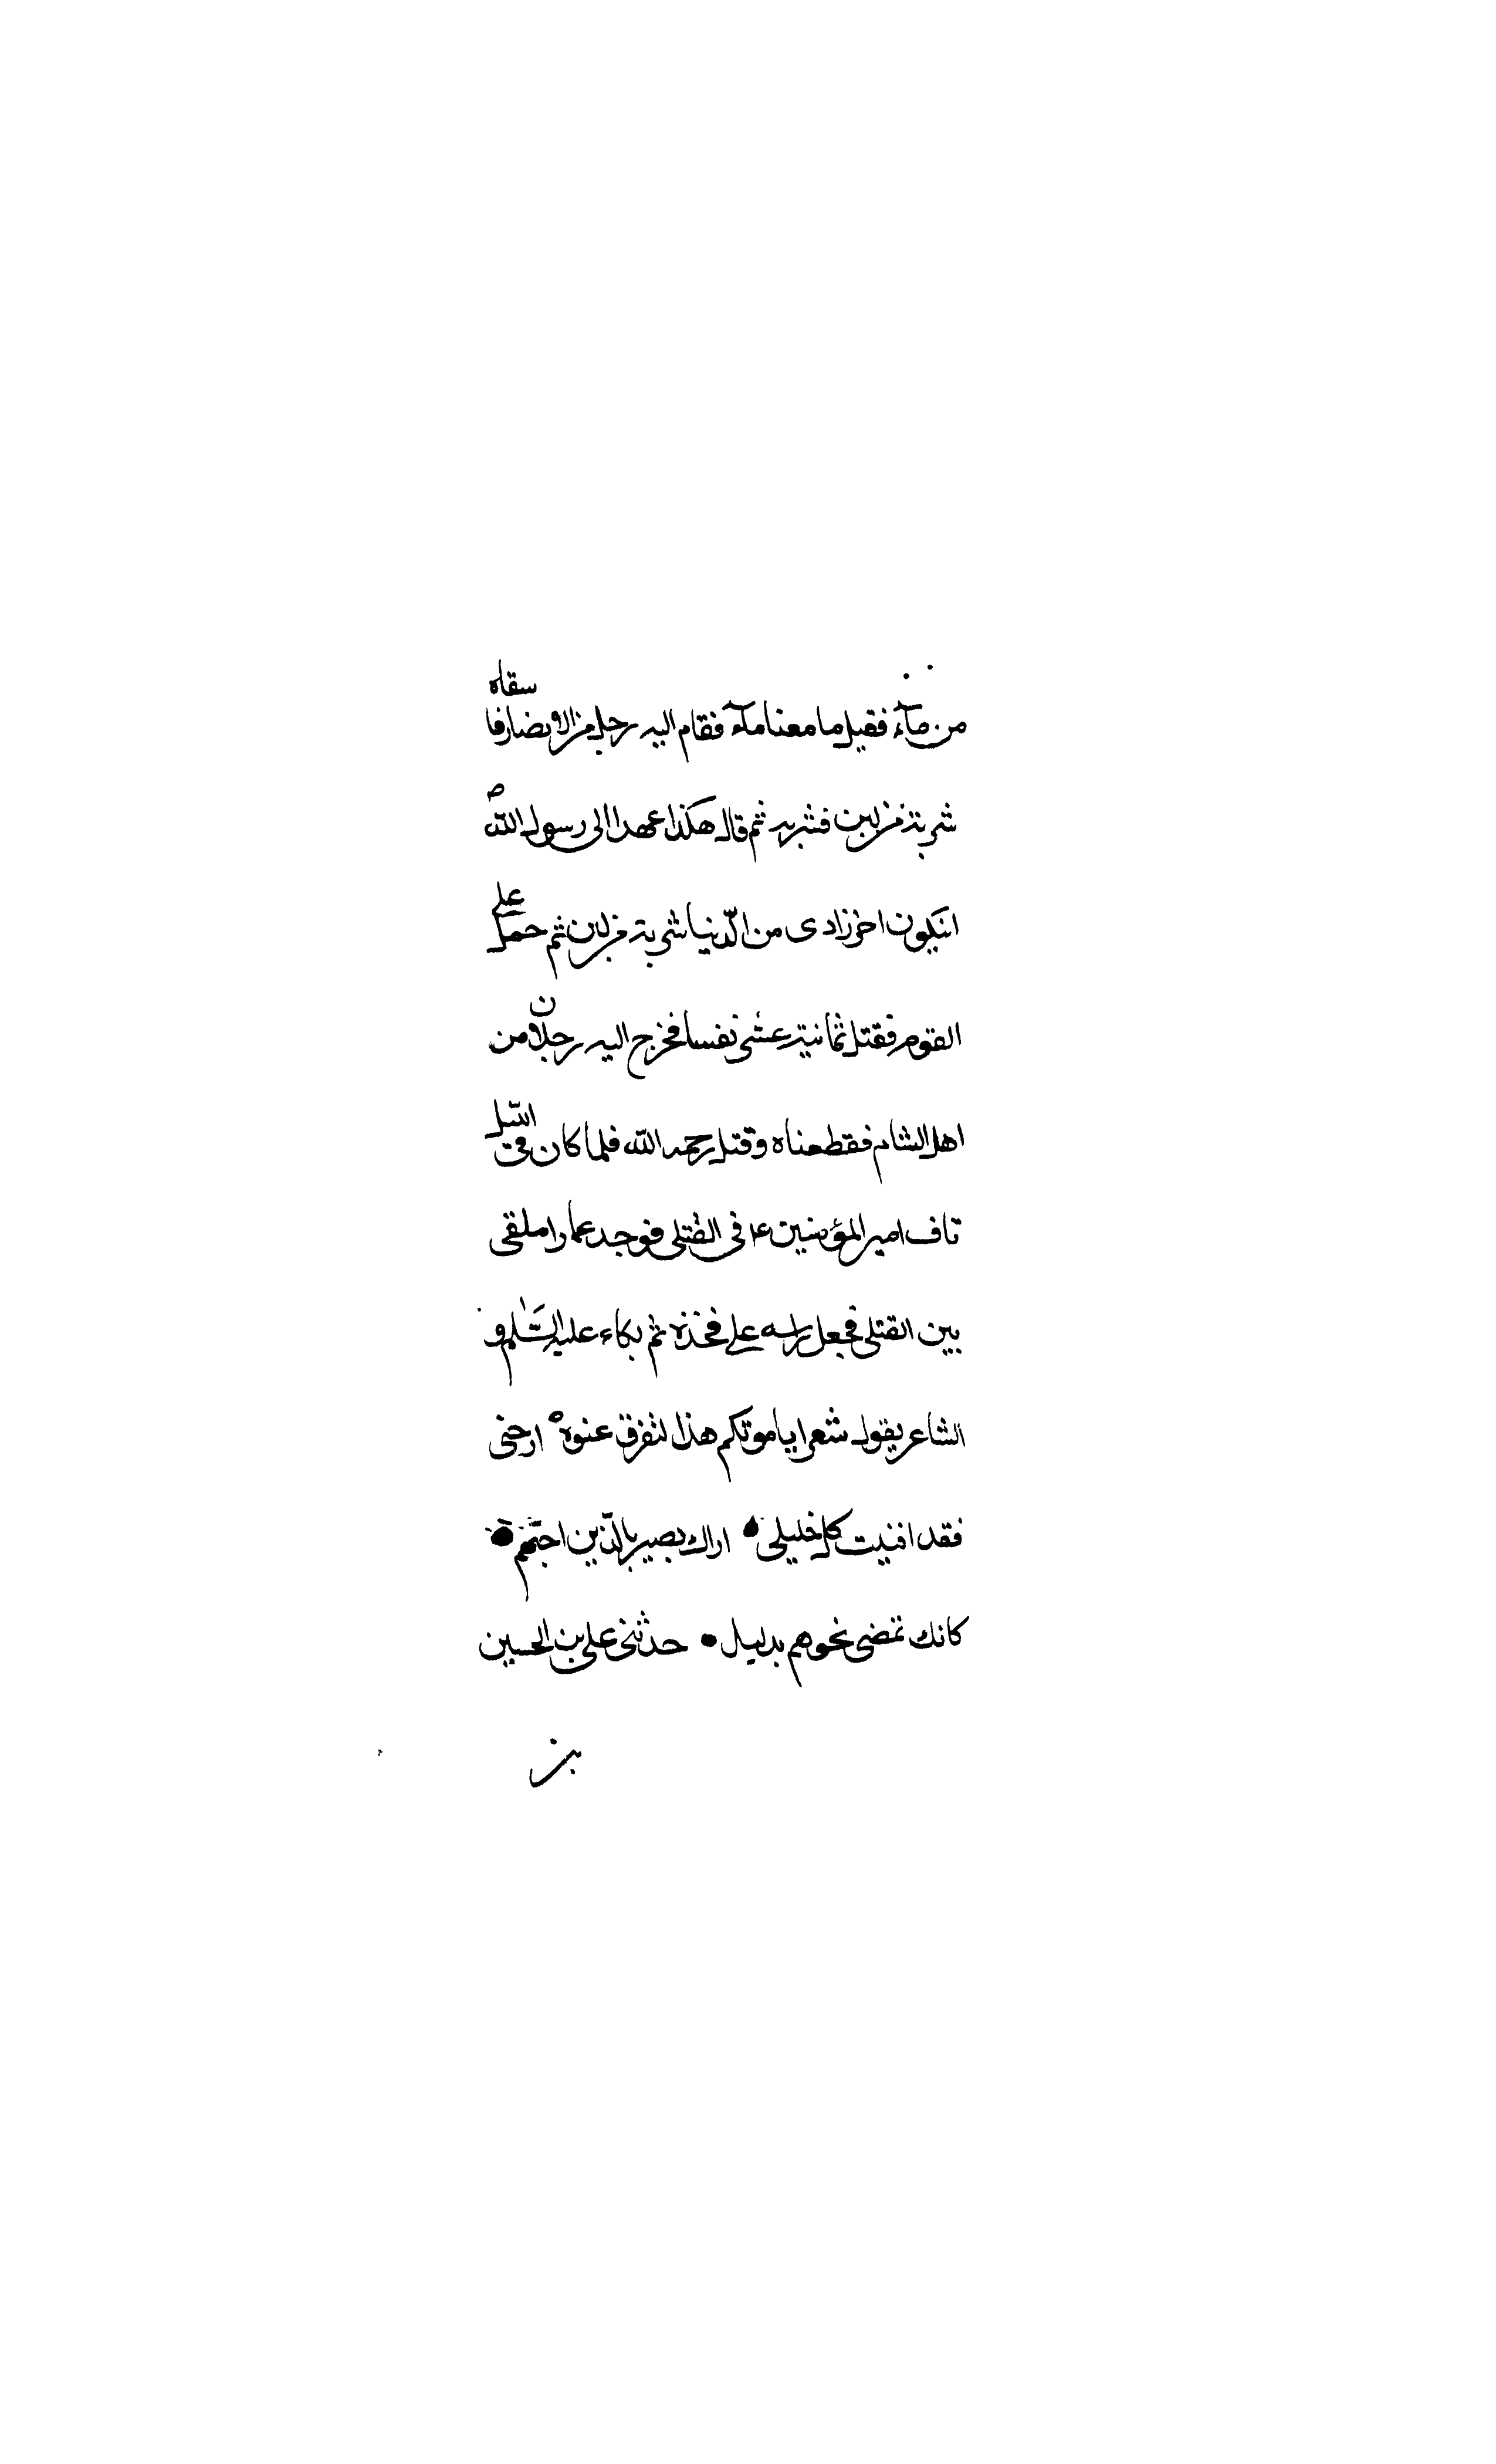 من مآء فقيل ما معنا مآء فقام اليه رجل من الانصار فاسقاه
شربة من لبن فشربه ثم قال هكذا عهد الى رسول الله ص
ان يكون اخر زادى من الدّنيا شربة من لبن ثم حمل على
القوم فقتل ثمانية عشر نفسا فخرج اليه رجلان من
اهل الشام فقطعناه وقتل رحمه الله فلما كان فى الليل
تاف امير المؤمنين ع فى القتلى فوجد عمارا ملقى
بين القتلى فجعل راسه على فخذه ثم بكاء عليه السّلم و
الشاعر يقول شعر ايا موتكم هذا لتفرق عنوة ارحنى
فقد افنيت كل خليلى اراك بصير بالذين احبّهم
كانك تمضى نحوهم بدليل حدثنى على بن الحسين
بن